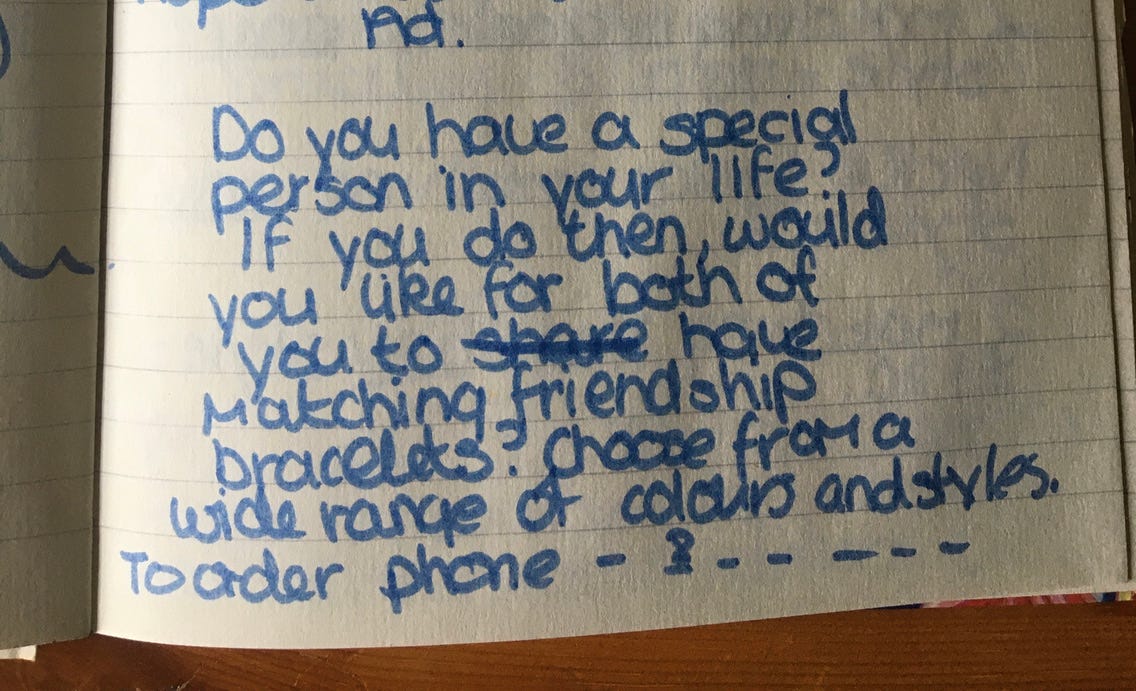 Ad.
Do you have a special
person in your life?
If you do then, would
you like for both of
you to share have
Matching friendship
bracelets? Choose from a
wide range of colours and styles.
To order phone - 8 - - - - -